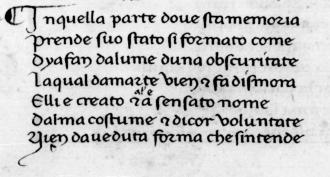 Inquella parte doue sta memoria
prende suo stato si formato come
Dyafan dalume duna obscuritate
Laqual damarte uien & fa dimora
Elli e creato & a sensato nome
Dalma costume & dicor uoluntate
Vien da ueduta forma che sintende